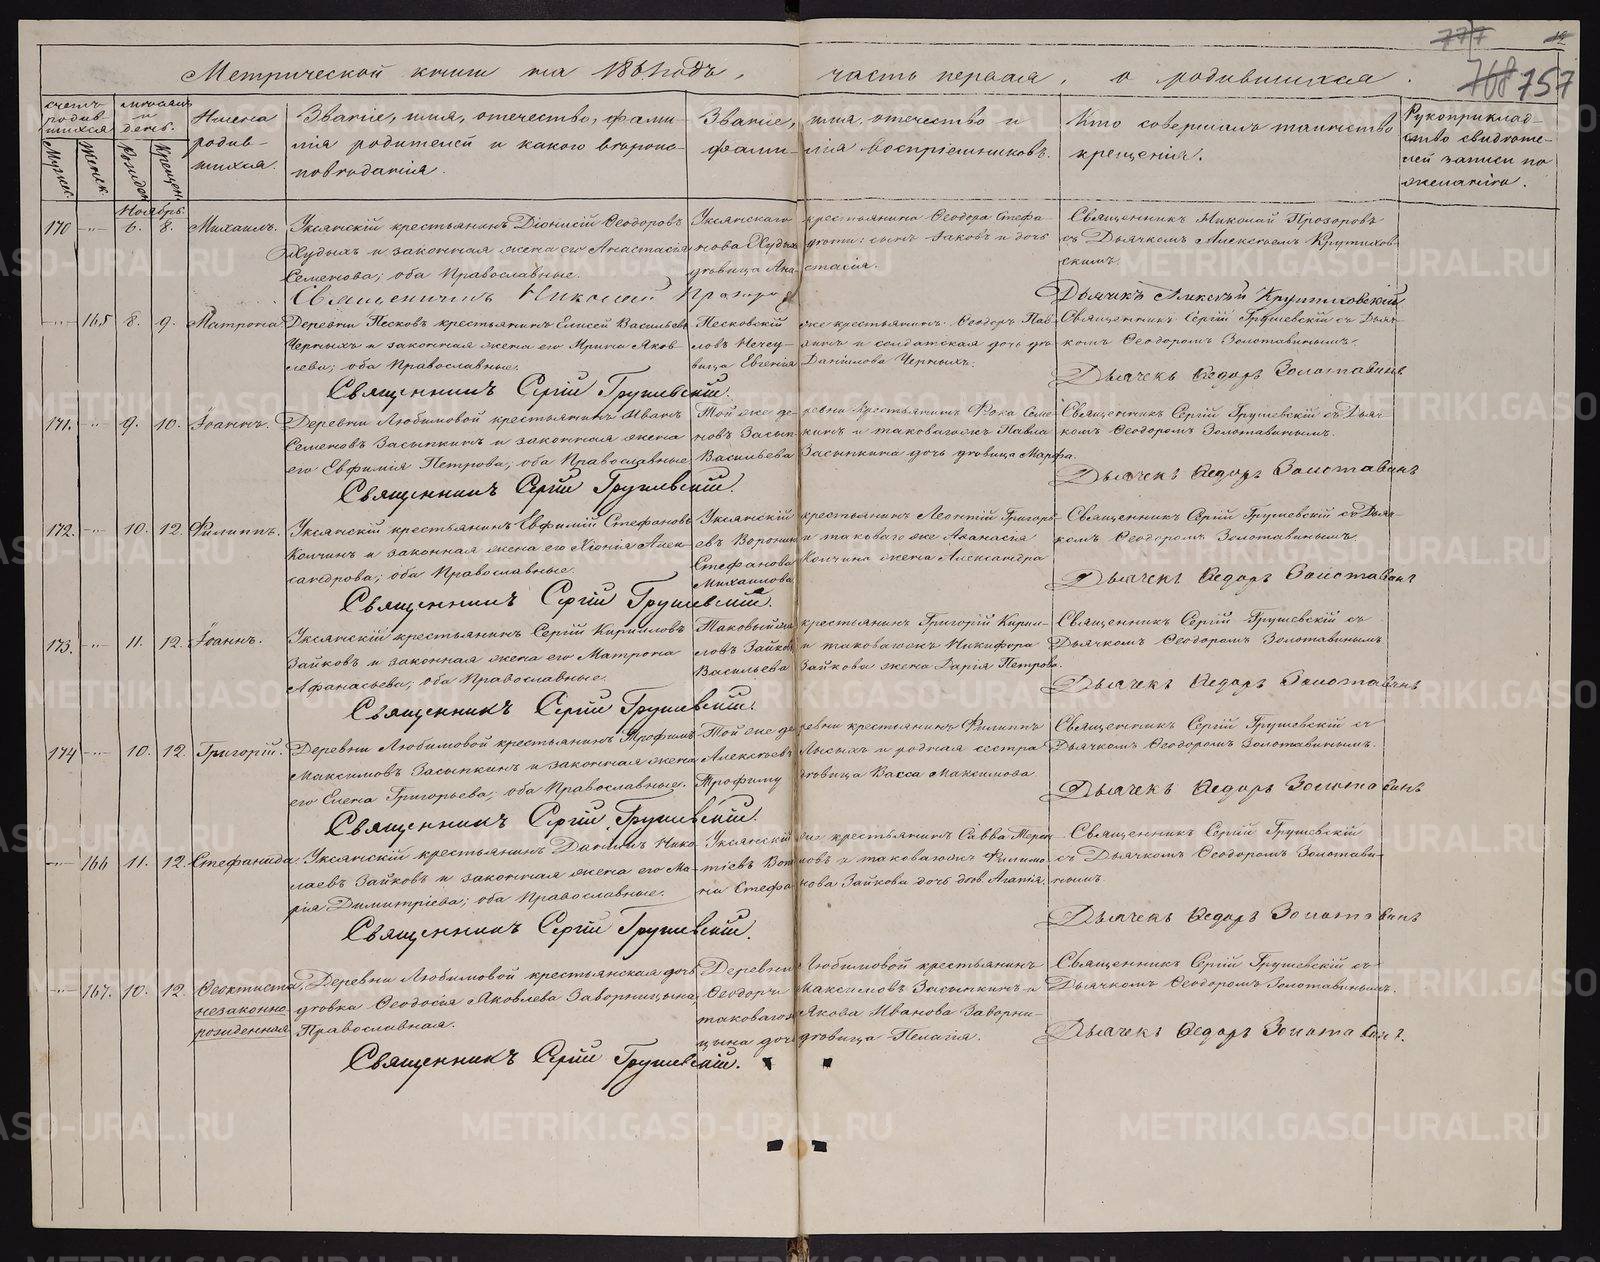 777
768 757
Метрической книги на 1861 годъ, часть первая, о родившихся.
счетъ родившихся
Мужес.
Женск.
мѣсяцъ и день.
Рожден.
Крещен.
Имена родившихся.
Званіе, имя, отечество, фамилія родителей и какого вѣроисповѣданія.
Званіе, имя, отечество и фамилія воспріемниковъ.
Кто совершалъ таинство крещенія.
Рукоприкладство свидѣтелей записи по желанію.
Ноябрь.
170 6. 8. Михаилъ.
Уксянскій крестьянинъ Діонисій Ѳеодоровъ
Худыхъ и законная жена его Анастасія
Семенова; оба Православные.
Уксянскаго крестьянина Ѳеодора Стефа-
нова Худыхъ дѣти: сынъ Іаковъ и дочь
дѣвица Анастасія.
Священникъ Николай Прозоровъ
съ Дьячкомъ Алексѣемъ Крутиховскимъ.
Священникъ Николай Прозоровъ
Дьячекъ Алексѣй Крутиховскій
165 8. 9. Матрона
Деревни Песковъ крестьянинъ Елисей Васильевъ
Черныхъ и законная жена его Ирина Яков-
лева; оба Православные.
Песковскій же крестьянинъ Ѳеодоръ Пав-
ловъ Нечеухинъ и солдатская дочь дѣ-
вица Евгенія Данілова Черныхъ.
Священникъ Сергій Грушевскій съ Дьяч-
комъ Ѳеодоромъ Золотавинымъ.
Священникъ Сергій Грушевскій.
Дьячекъ Ѳедоръ Золотавинъ
171. 9. 10. Іоаннъ.
Деревни Любимовой крестьянинъ Иванъ
Семеновъ Засыпкинъ и законная жена
его Евфимія Петрова; оба Православные
Той же деревни крестьянинъ Фока Семе-
новъ Засыпкинъ и таковагожъ Павла
Васильева Засыпкина дочь дѣвица Марфа.
Священникъ Сергій Грушевскій съ Дьяч-
комъ Ѳеодоромъ Золотавинымъ.
Священникъ Сергій Грушевскій.
Дьячекъ Ѳедоръ Золотавинъ
172. 10. 12. Филиппъ.
Уксянскій крестьянинъ Евфимій Стефановъ
Колчинъ и законная жена его Хіонія Алек-
сандрова; оба Православные.
Уксянскій крестьянинъ Леонтій Григорь-
евъ Воронинъ и таковаго же Аѳанасія
Стефанова Колчина жена Александра
Михаилова
Священникъ Сергій Грушевскій съ Дьяч-
комъ Ѳеодоромъ Золотавинымъ.
Священникъ Сергій Грушевскій.
Дьячекъ Ѳедоръ Золотавинъ
173. 11. 12. Іоаннъ.
Уксянскій крестьянинъ Сергій Кирилловъ
Зайковъ и законная жена его Матрона
Афанасьева; оба Православные.
Таковый же крестьянинъ Григорій Кирил-
ловъ Зайковъ и таковагожъ Никифора
Васильева Зайкова жена Дарія Петрова.
Священникъ Сергій Грушевскій съ
Дьячкомъ Ѳеодоромъ Золотавинымъ
Священникъ Сергій Грушевскій.
Дьячекъ Ѳедоръ Золотавинъ
174 10. 12. Григорій.
Деревни Любимовой крестьянинъ Трофимъ
Максимовъ Засыпкинъ и законная жена
его Елена Григорьева; оба Православные.
Той же деревни крестьянинъ Филиппъ
Алексѣевъ Лысыхъ и родная сестра
Трофиму дѣвица Васса Максимова
Священникъ Сергій Грушевскій съ
Дьячкомъ Ѳеодоромъ Золотавинымъ.
Священникъ Сергій Грушевскій.
Дьячекъ Ѳедоръ Золотавинъ
166 11. 12. Стефанида.
Уксянскій крестьянинъ Даніилъ Нико-
лаевъ Зайковъ и законная жена его Ма-
рія Димитріева; оба Православные.
Уксянскій же крестьянинъ Савва
и таковагожъ Филимо-
на Стефанова Зайкова дочь дѣв. Агапія.
Священникъ Сергій Грушевскій
съ Дьячкомъ Ѳеодоромъ Золотави-
нымъ.
Священникъ Сергій Грушевскій.
Дьячекъ Ѳедоръ Золотавинъ
167. 10. 12. Ѳеоктиста, незаконнорожденная
Деревни Любимовой крестьянская дочь
дѣвка Ѳеодосія Яковлева Заворницына,
Православная.
Деревни Любимовой крестьянинъ
Ѳеодоръ Максимовъ Засыпкинъ и
таковагожъ Якова Иванова Заворни-
цына дочь дѣвица Пелагія.
Священникъ Сергій Грушевскій съ
Дьячкомъ Ѳеодоромъ Золотавинымъ.
Священникъ Сергій Грушевскій.
Дьячекъ Ѳедоръ Золотавинъ.
METRIKI.GASO-URAL.RU